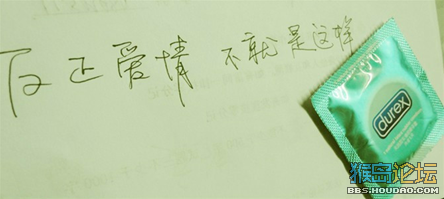 反正爱情 不就是这样
durex
猴岛论坛
BBS.HOUDAO.COM